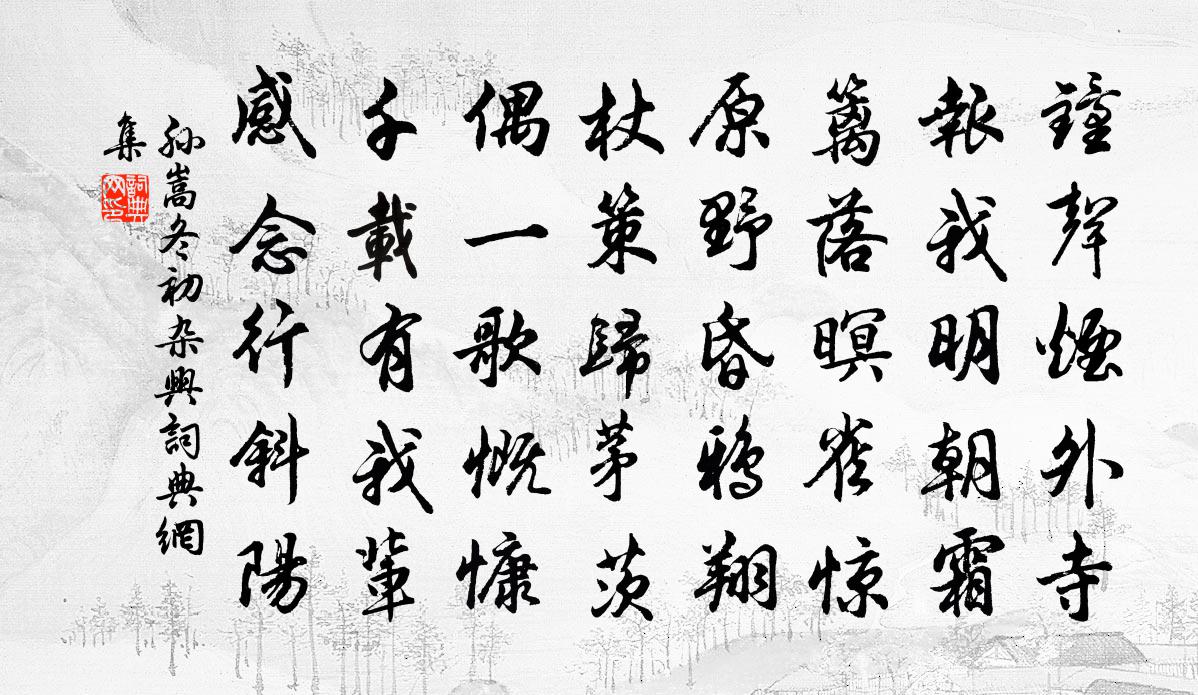 鐘聲煙外寺
報我明朝霜
籬落暝雀惊
原野昏鴉翔
杖策歸茅茨
偶一歌慨慷
千載有我輩
感念行斜陽
孙嵩冬初杂興詞典網
集
詞典网印